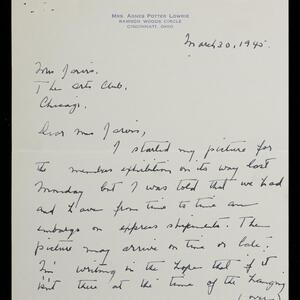 Mrs. Agnes Potter Lowrie
Rawson Woods Circle
Cincinnati, Ohio
March 20, 1945.
Mrs Jarvis.
The Arts Club,
Chicago.
Dear Mrs Jarvis,
I started my picture for
the members exhibition on its way last
Monday but I was told that we had
and have from time to time an
embargo on express shipments. The
picture may arrive on time or late.
I'm writing in the hope that if it
isn't there at the time of the hanging
(over)